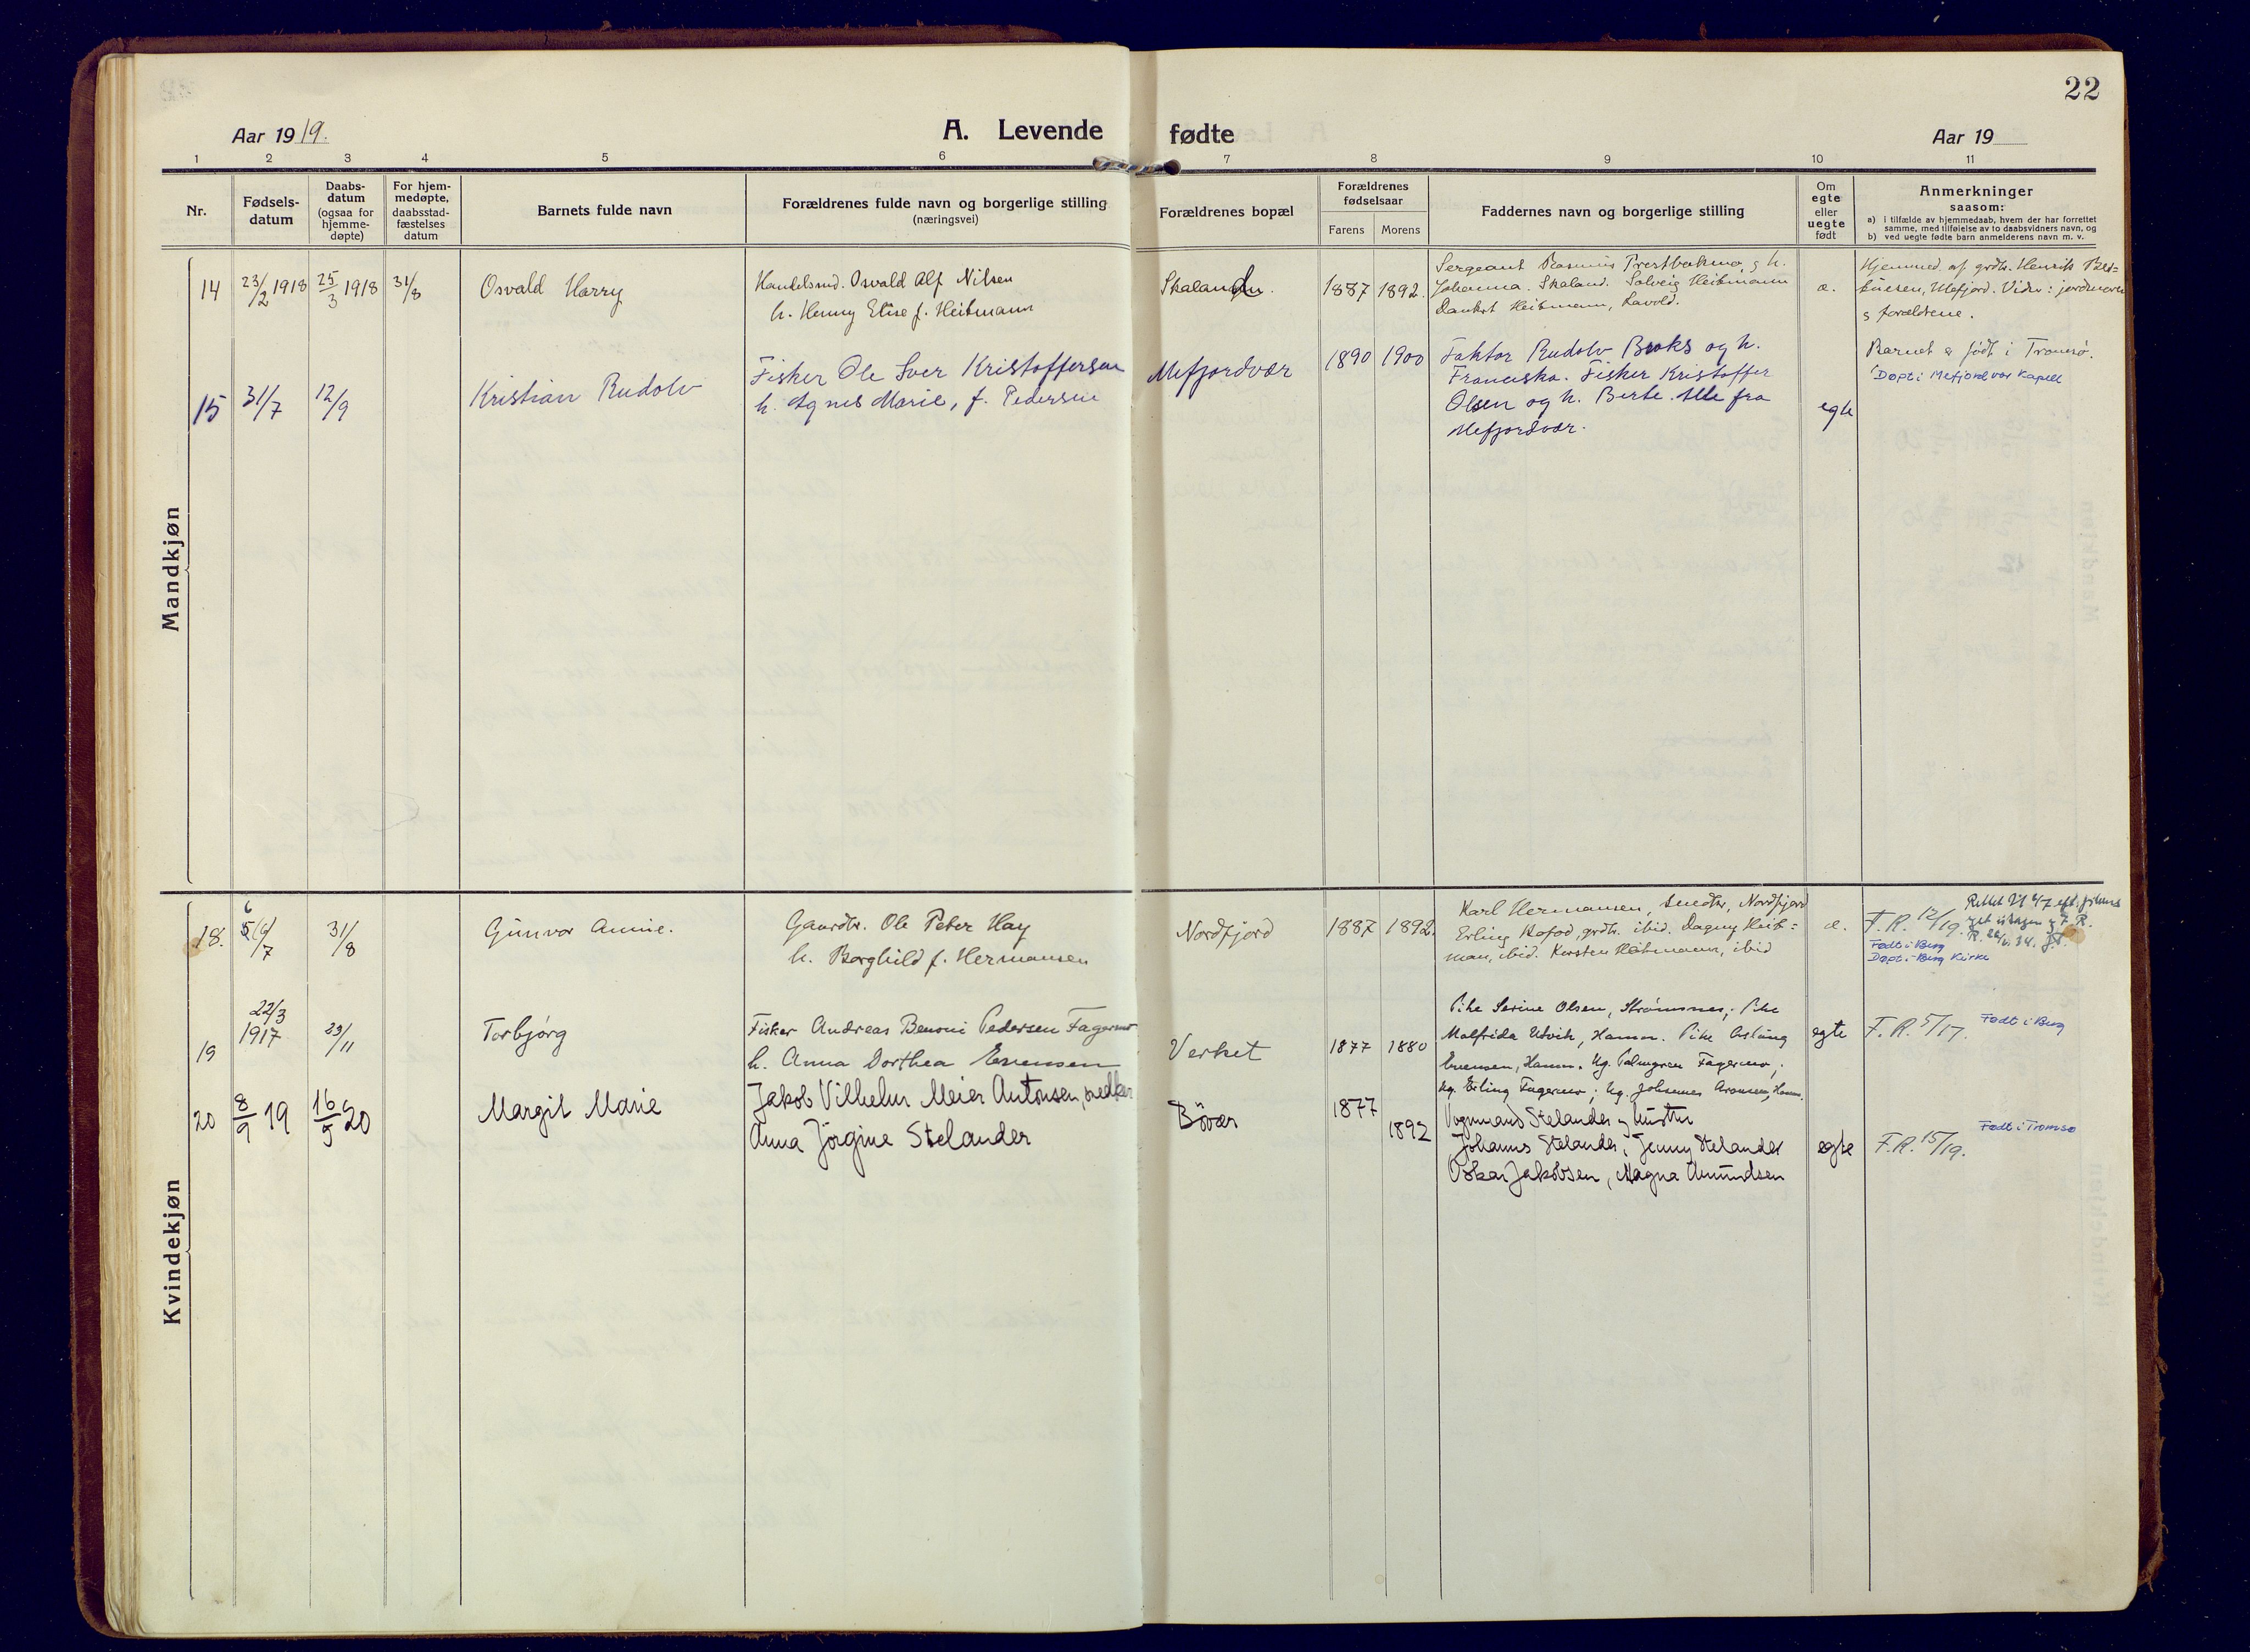 22
Aar 1919.
A. Levende fødte
Aar 19
1 2 3 4 5 6 7 8 9 10 11
Nr.
Fødsels-
datum
Daabs-
datum
(ogsaa for
hjemme-
døpte)
For hjem-
medøpte,
daabsstad-
fæstelses
datum
Barnets fulde navn
Forældrenes fulde navn og borgerlige stilling
(næringsvei)
Forældrenes bopæl
Forældrenes
fødselsaar
Farens Morens
Faddernes navn og borgerlige stilling
Om
egte
eller
uegte
født
Anmerkninger
saasom:
a) i tilfælde av hjemmedaab, hvem der har forrettet
samme, med tilføielse av to daabsvidners navn, og
b) ved uegte fødte barn anmelderens navn m. v.
Mandkjøn
14
23/2 1918
25/3 1918
31/8
Osvald Harry
Handelsmd. Osvald Alf Nilsen
h. Henny Elise f. Heitmann
Skaland
1887 1892.
Sergeant Rasmus Prestbakmo, g h.
Johanna. Skaland. Solveig Heitmann
Dankert Heitmann, Lavold.
æ.
Hjemmed. af grdb. Henrik
Mefjord. Vidner: jordmoren
g forældrene.
15
31/7
12/9
Kristian Rudolv
Fisker Ole Kristoffersen
h. Agnes Marie, f. Pedersen
Mefjordvær
1890 1900
Faktor Rudolv Broks og h.
Franciska. Fisker Kristoffer
Olsen og h. Berte. Alle fra
Mefjordvær.
egte
Barnet er født i Tromsø.
Døpt i Mefjordvær Kapell
Kvindekjøn
18.
6/7
31/8
Gunvor Annie.
Gaardbr. Ole Peter Hay
h. Borghild f. Hermansen
Nordfjord
1887 1892.
Karl Hermansen, Nordfjord
Erling Kofod, grdb. ibid. Dagny Heit=
man, ibid. Karsten Heitmann, ibid
æ.
F. R. 12/19.
Født i Berg
Døpt i Berg Kirke
19
22/3
1917
23/11
Torbjørg
Fisker Andreas Benoni Pedersen Fagermo
h. Anna Dorthea Evensen
Verket
1877 1880
Pike Serine Olsen, Strømsnes; Pike
Malfrida Utvik, Hamn. Pike Aslaug
Evensen, Hamn. Ug. Palmgren Fagermo;
Ug. Erling Fagermo; Ug. Johannes Aronsen, Hamn.
egte
F. R. 5/17.
Født i Berg
20
8/9 19
16/5 20
Margit Marie
Jakob Vilhelm Meier Antonsen,
Anna Jørgine Stelander
Bövær
1877
1892
Vognmand Stelander g hustru
Johannes Stelander, Jenny Stelander
Oskar Jakobsen, Magna Amundsen
egte
F. R. 15/19.
Født i Tromsø